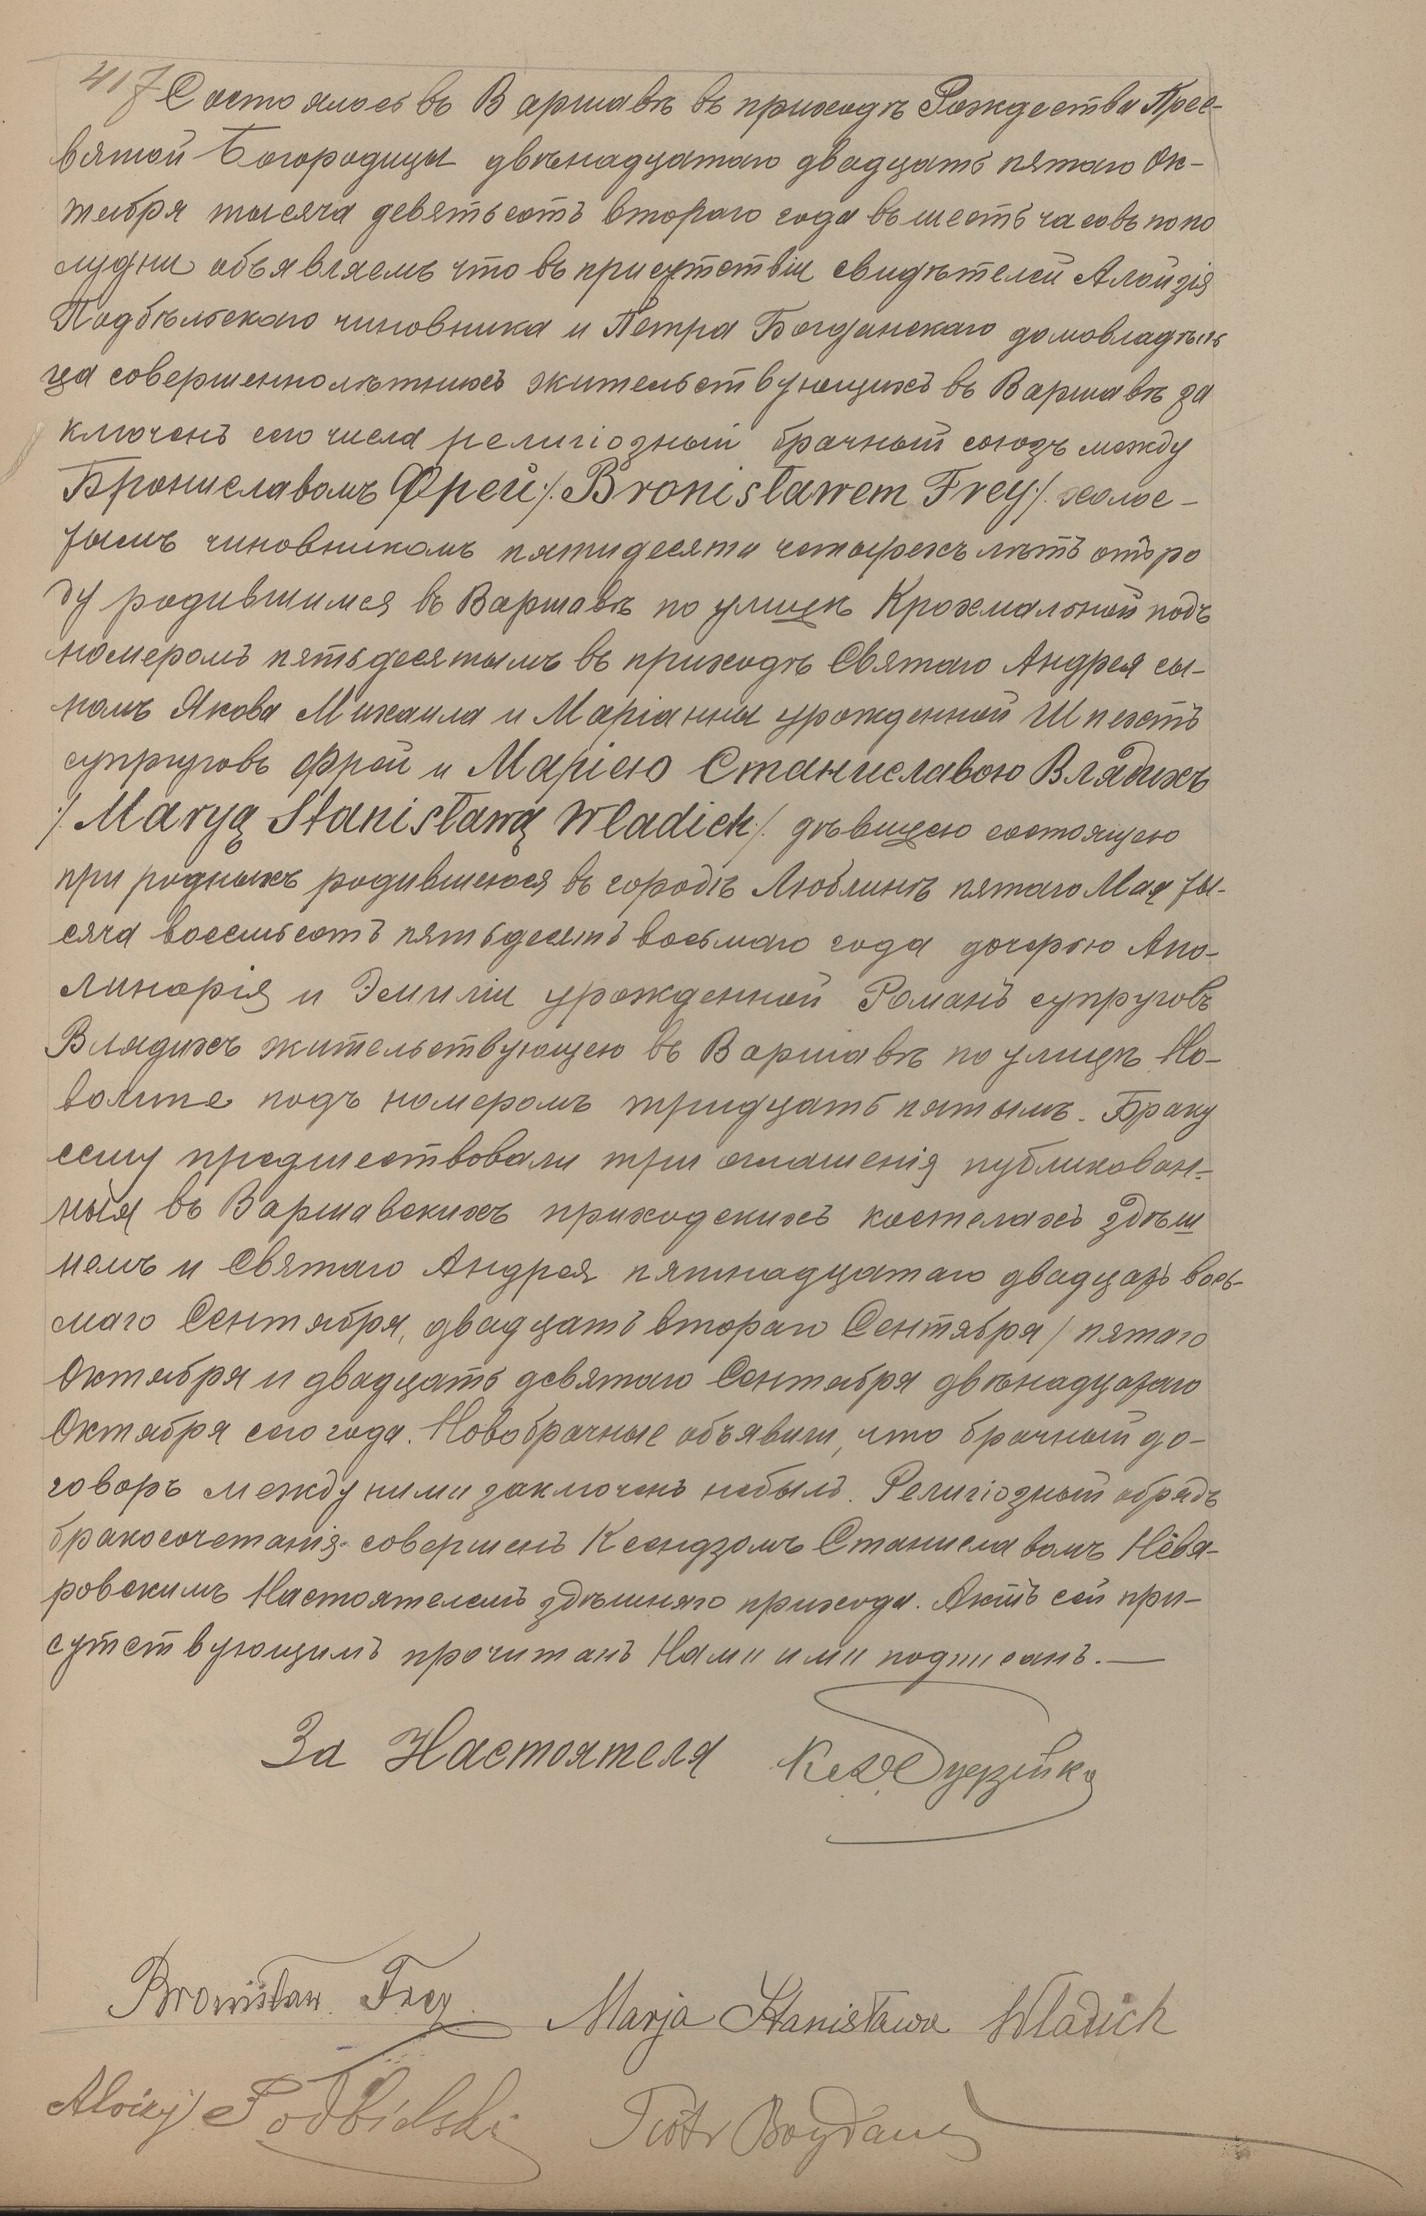 417 Состоялось въ Варшавѣ въ приходѣ Рождества Прес-
вятой Богородицы двѣнадцатаго двадцать пятаго Ок-
тября тысяча девятьсотъ втораго года въ шесть часовъ попо
лудни объявляемъ что въ присутствіи свидѣтелей Алойзія
Подбѣльскаго чиновника и Петра Богданскаго домовладѣль
ца совершеннолѣтнихъ жительствующихъ въ Варшавѣ за
ключенъ сего числа религіозный брачный союзъ между
Брониславомъ Фрей /. Bronisławem Frey /. холос-
тымъ чиновникомъ пятидесяти четырехъ лѣтъ отъ ро
ду родившимся въ Варшавѣ по улицѣ Крохмальной подъ
номеромъ пятьдесятымъ въ приходѣ Святаго Андрея сы-
номъ Якова Михаила и Маріанны урожденной Шпехтъ
супруговъ Фрей и Маріею Станиславою Влядихъ
/. Maryą Stanisławą Wladich /. дѣвицею состоящею
при родныхъ родившеюся въ городѣ Люблинѣ пятаго Мая ты-
сяча восемьсотъ пятьдесятъ восьмаго года дочерью Апо-
линарія и Эмиліи урожденной Романъ супруговъ
Влядихъ жительствующею въ Варшавѣ по улицѣ Но-
волипе подъ номеромъ тридцать пятымъ. Браку
сему предшествовали три оглашенія публикован-
ныя въ Варшавскихъ приходскихъ костелахъ здѣш
немъ и Святаго Андрея пятнадцатаго двадцать вось-
маго Сентября, двадцать втораго Сентября / пятаго
Октября и двадцать девятаго Сентября двѣнадцатаго
Октября сего года. Новобрачные объявили, что брачный до-
говоръ между ними заключенъ небылъ. Религіозный обрядъ
бракосочетанія совершенъ Ксендзомъ Станиславомъ Невя-
ровскимъ Настоятелемъ здѣшняго прихода. Актъ сей при-
сутствующимъ прочитанъ Нами ими подписанъ. —
За Настоятеля
Bronisław Frey Marja Stanisława Wladich
Aloizy Podbielski Piotr